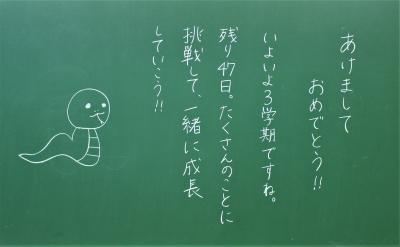 あけまして
おめでとう!!
いよいよ3学期ですね。
残り47日。たくさんのことに
挑戦して、一緒に成長
していこう!!